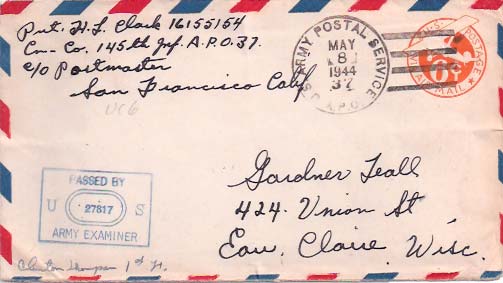 Pvt. H. L. Clark 16155154
Can. Co. 145th Inf. A.P.O. 37.
c/o Postmaster
San Francisco Calif
UC6
U.S. ARMY POSTAL SERVICE
A.P.O.
MAY
8
1944
37
U.S. POSTAGE
6¢
VIA AIR MAIL
PASSED BY
U 27817 S
ARMY EXAMINER
Gardner Teall
424 Union St
Eau Claire Wisc.
1st Lt.